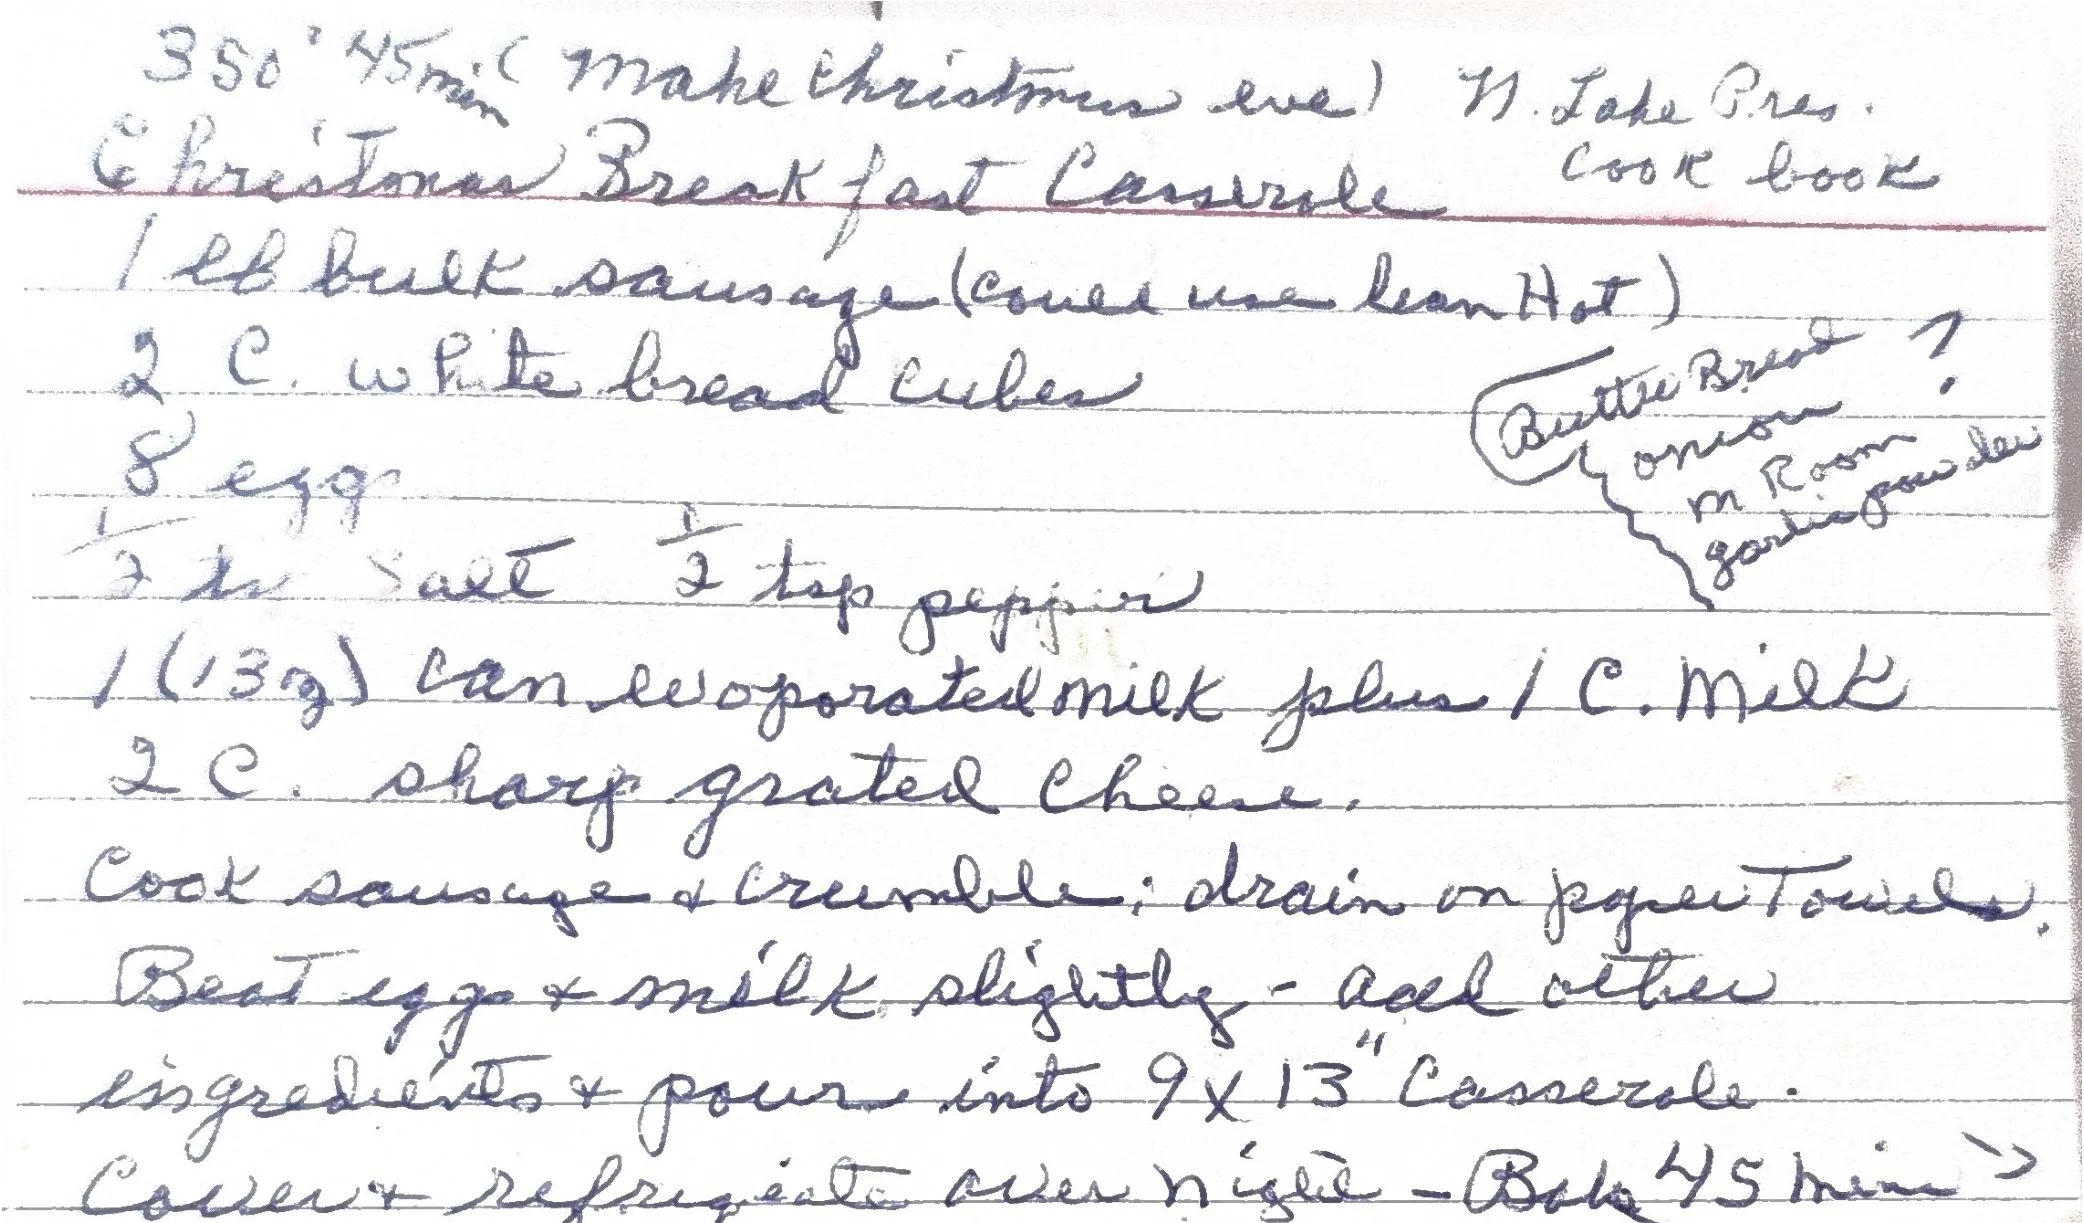 350° 45 min (Make Christmas eve) N. Lake Pres.
cook book
Christmas Breakfast Casserole
1 lb bulk sausage (could use lean Hot)
2 C. white bread cubes
Butter Bread ?
onion
M Room
garlic powder
8 eggs
1/2 ts salt 1/2 tsp pepper
1 (13 oz) can evaporated milk plus 1 C. Milk
2 C. sharp grated cheese.
Cook sausage & crumble; drain on paper Towels.
Beat eggs & milk slightly - add other
ingredients & pour into 9x13" Casserole.
Cover & refrigerate over night - Bake 45 min >>